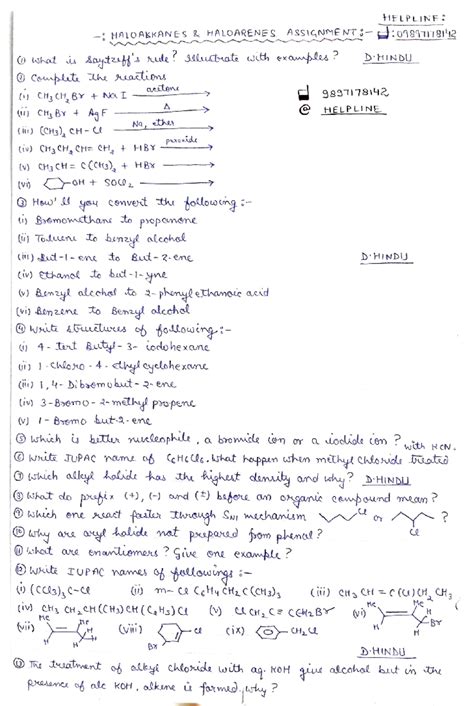 HELPLINE:
-: HALOALKANES & HALOARENES ASSIGNMENT:- : 09897178142
(1) What is Saytzeff's rule? Illustrate with examples? D.HINDU
(2) Complete the reactions
(i) CH3CH2Br + NaI acetone
9897178142
(ii) CH3Br + AgF Δ
@ HELPLINE
(iii) (CH3)2 CH-Cl Na, ether
(iv) CH3CH2CH=CH2 + HBr peroxide
(v) CH3CH=C(CH3)2 + HBr
(vi) -OH + SOCl2
(3) How'll you convert the following :-
(i) Bromomethane to propanone
(ii) Toluene to benzyl alcohol
(iii) But-1-ene to But-2-ene D.HINDU
(iv) Ethanol to but-1-yne
(v) Benzyl alcohol to 2-phenylethanoic acid
(vi) Benzene to Benzyl alcohol
(4) Write structures of following:-
(i) 4-tert Butyl-3-iodohexane
(ii) 1-Chloro-4-ethylcyclohexane
(iii) 1,4-Dibromobut-2-ene
(iv) 3-Bromo-2-methyl propene
(v) 1-Bromo but-2-ene
(5) Which is better nucleophile, a bromide ion or a iodide ion?
(6) Write IUPAC name of C6H6Cl6. What happen when methyl chloride treated with KCN.
(7) Which alkyl halide has the highest density and why? D.HINDU
(8) What do prefix (+), (-) and (±) before an organic compound mean?
(9) Which one react faster through SN1 mechanism Cl or Cl ?
(10) Why are aryl halide not prepared from phenol?
(11) What are enantiomers? Give one example?
(12) Write IUPAC names of followings :-
(i) (CCl3)3C-Cl (ii) m-Cl C6H4CH2C(CH3)3 (iii) CH3CH=C(Cl)CH2CH3
(iv) CH3CH2CH(CH3)CH(C2H5)Cl (v) ClCH2C≡CCH2Br (vi) Me Me H H Br
(vii) Me H H (viii) Cl Br (ix) -CH2Cl
D.HINDU
(13) The treatment of alkyl chloride with aq. KOH give alcohol but in the
presence of alc KOH, alkene is formed, why?